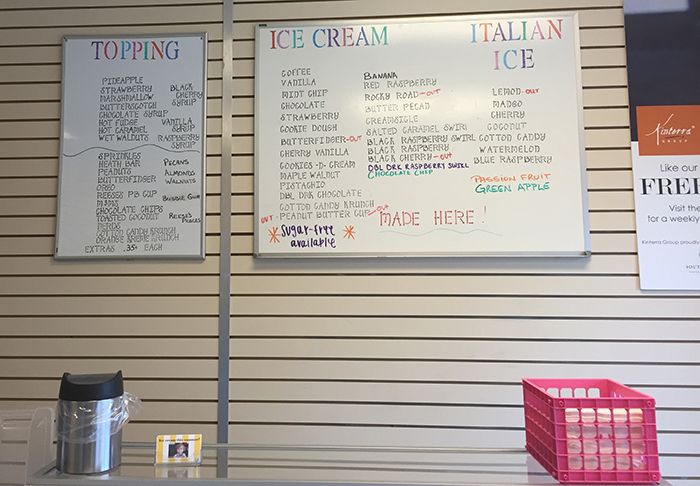 TOPPING
PINEAPPLE
STRAWBERRY
MARSHMALLOW
BUTTERSCOTCH
CHOCOLATE SYRUP
HOT FUDGE
HOT CARAMEL
WET WALNUTS
BLACK
CHERRY
SYRUP
VANILLA
SYRUP
RASPBERRY
SYRUP
SPRINKLES
HEATH BAR
PEANUTS
BUTTERFINGER
OREO
REESES PB CUP
M&MS
CHOCOLATE CHIPS
TOASTED COCONUT
NERDS
COTTON CANDY KRUNCH
ORANGE KREME KRUNCH
PECANS
ALMONDS
WALNUTS
BUBBLE GUM
REESES
PIECES
EXTRAS .35¢ EACH
ICE CREAM
COFFEE
VANILLA
MINT CHIP
CHOCOLATE
STRAWBERRY
COOKIE DOUGH
BUTTERFINGER-OUT
CHERRY VANILLA
COOKIES-N-CREAM
MAPLE WALNUT
PISTACHIO
DBL DRK CHOCOLATE
COTTON CANDY KRUNCH
OUT - PEANUT BUTTER CUP - OUT
BANANA
RED RASPBERRY
ROCKY ROAD-OUT
BUTTER PECAN
CREAMSICLE
SALTED CARAMEL SWIRL
BLACK RASPBERRY SWIRL
BLACK RASPBERRY
BLACK CHERRY-OUT
DBL DRK RASPBERRY SWIRL
CHOCOLATE CHIP
ITALIAN
ICE
LEMON-OUT
MANGO
CHERRY
COCONUT
COTTON CADDY
WATERMELON
BLUE RASPBERRY
PASSION FRUIT
GREEN APPLE
* Sugar-free *
available
MADE HERE!
Kinterra
GROUP
Like our
FREE
Visit the
for a weekly
Kinterra Group proudly